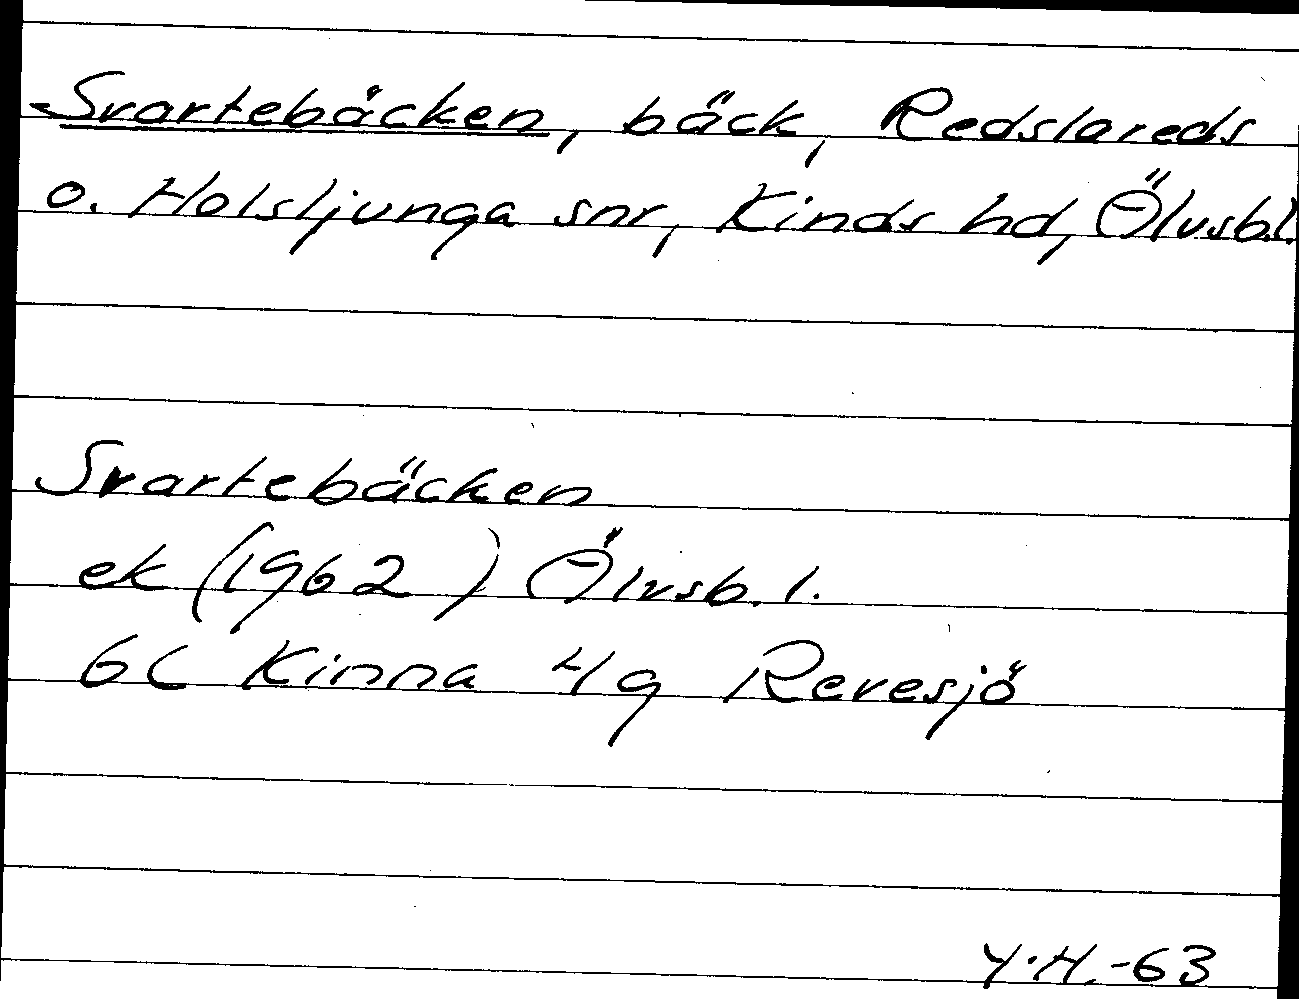 Svartebäcken, bäck, Redslareds
o. Holsljunga snr, Kinds hd, Älvsb.l.
Svartebäcken
ek (1962) Älvsb. l.
6C Kinna 4g Revesjö
Y.H.-63